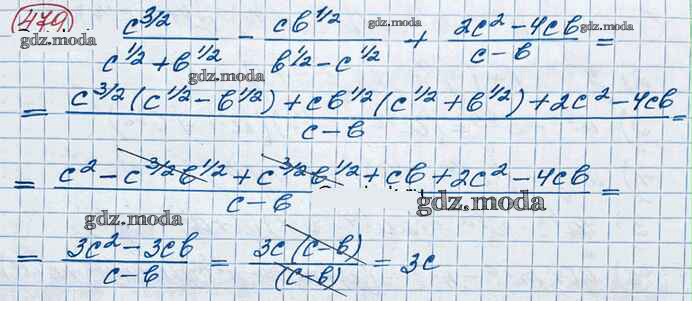 479 c^{3/2}/(c^{1/2} + b^{1/2}) - cb^{1/2}/(b^{1/2} - c^{1/2}) + (2c² - 4cb)/(c - b) =
gdz.moda gdz.moda gdz.moda gdz.moda
= (c^{3/2}(c^{1/2} - b^{1/2}) + cb^{1/2}(c^{1/2} + b^{1/2}) + 2c² - 4cb)/(c - b) =
gdz.moda
= (c² - c^{3/2}b^{1/2} + c^{3/2}b^{1/2} + cb + 2c² - 4cb)/(c - b) =
gdz.moda gdz.moda
= (3c² - 3cb)/(c - b) = 3c(c - b)/(c - b) = 3c
gdz.moda